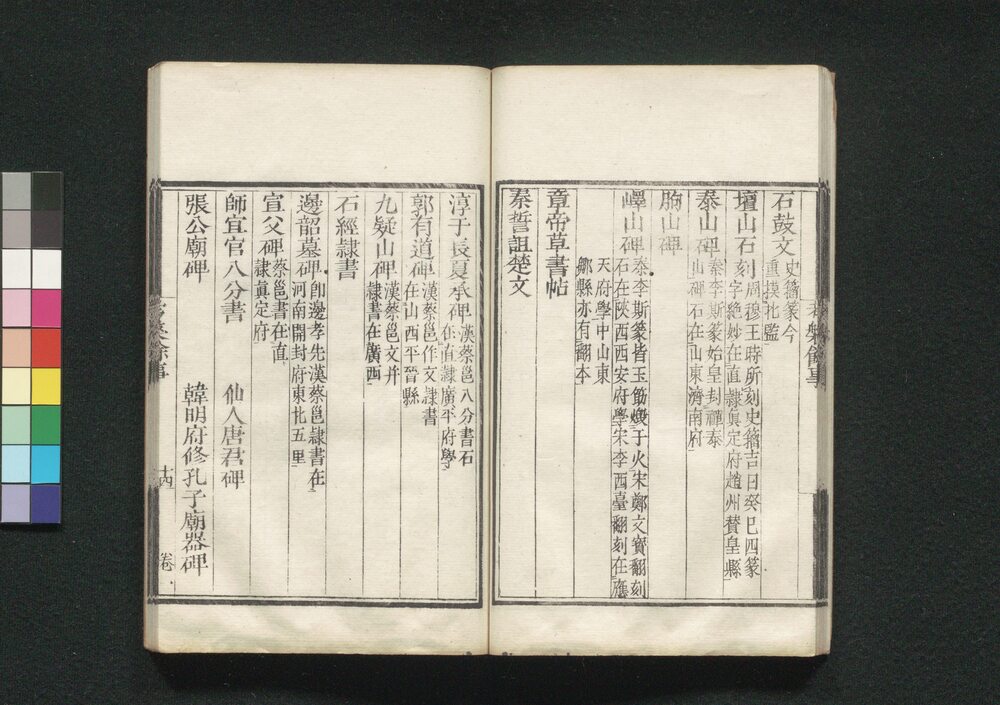 石鼓文史籀篆今
重摸北監
壇山石刻周穆王時所刻史籀吉日癸巳四篆
字絶妙在直隷眞定府趙州賛皇縣
泰山碑秦李斯篆始皇封禪泰
山碑石在山東濟南府
朐山碑
嶧山碑秦李斯篆皆玉筯燬于火宋鄭文寳翻刻
石在陝西西安府學宋李西臺翻刻在應
天府學中山東
鄒縣亦有翻本
章帝草書帖
秦誓詛楚文
淳于長夏承碑漢蔡邕八分書石
在直隷廣平府學
郭有道碑漢蔡邕作文隷書
在山西平晉縣
九疑山碑漢蔡邕文并
隷書在廣西
石經隷書
邊韶墓碑卽邊孝先漢蔡邕隷書在
河南開封府東北五里
宣父碑蔡邕書在直
隷眞定府
師宜官八分書 仙人唐君碑
張公廟碑 韓明府修孔子廟器碑
餘事
卷